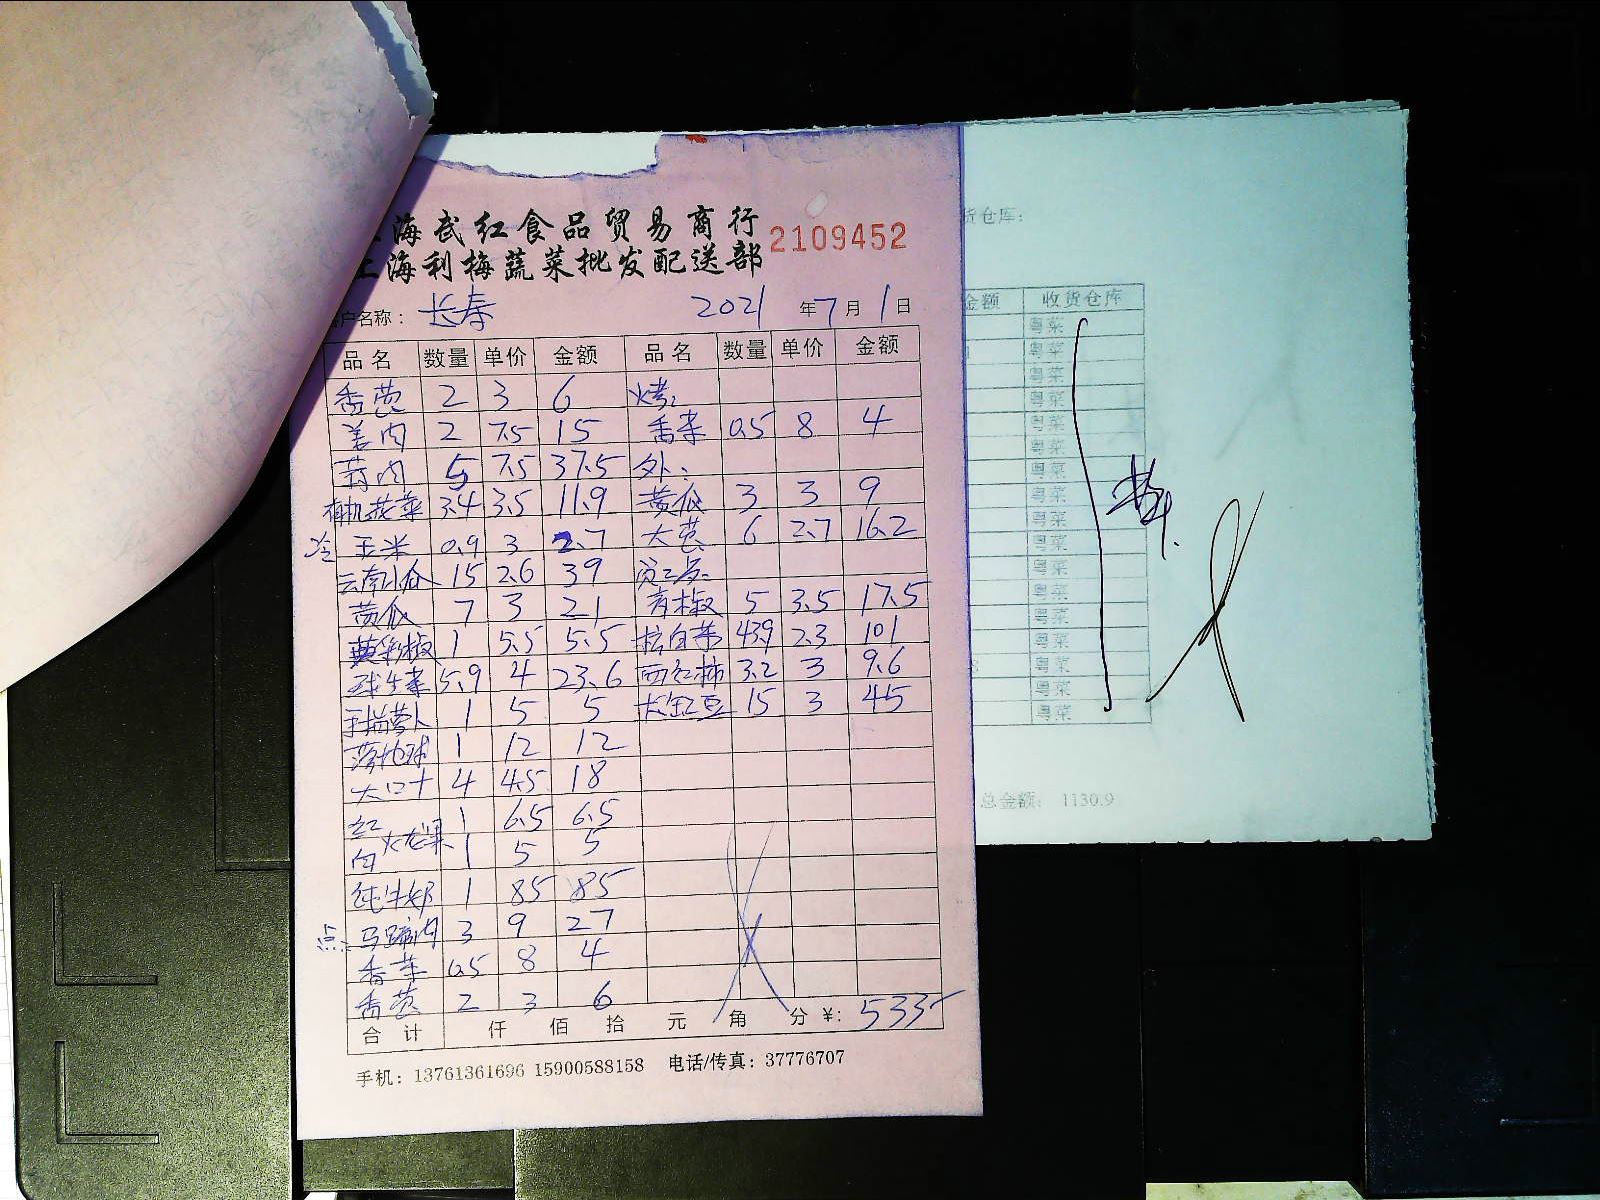 上海武红食品贸易商行
上海利梅蔬菜批发配送部
2109452
客户名称：长寿 2021年7月1日
品名 数量 单价 金额 品名 数量 单价 金额
香葱 2 3 6 烤：
姜肉 2 7.5 15 香菜 0.5 8 4
蒜肉 5 7.5 37.5 外：
有机蔬菜 3.4 3.5 11.9 黄瓜 3 3 9
冷 玉米 0.9 3 2.7 大葱 6 2.7 16.2
云南小瓜 15 2.6 39
黄瓜 7 3 21 青椒 5 3.5 17.5
黄彩椒 1 5.5 5.5 43.9 2.3 101
球生菜 5.9 4 23.6 西红柿 3.2 3 9.6
手指萝卜 1 5 5 长豇豆 15 3 45
1 12 12
大口十 4 4.5 18
红 火龙果 1 6.5 6.5
白 1 5 5
纯牛奶 1 85 85
点： 马蹄肉 3 9 27
香菜 0.5 8 4
香葱 2 3 6
合计 仟 佰 拾 元 角 分 ¥：533
手机：13761361696 15900588158 电话/传真：37776707
货仓库：
金额 收货仓库
粤菜
粤菜
粤菜
粤菜
粤菜
粤菜
粤菜
粤菜
粤菜
粤菜
粤菜
粤菜
粤菜
粤菜
粤菜
粤菜
粤菜
总金额： 1130.9